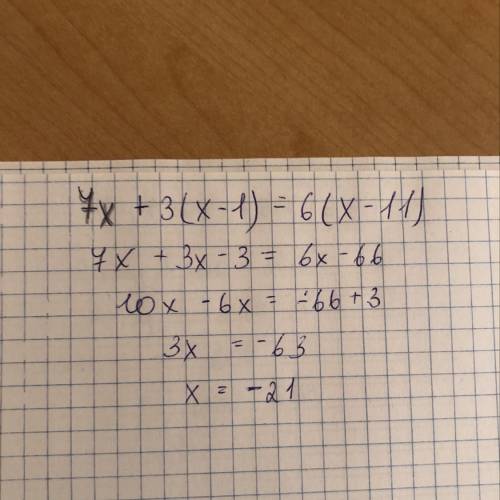 7x + 3(x-1) = 6(x-11)
7x + 3x - 3 = 6x - 66
10x - 6x = -66 + 3
3x = -63
x = -21